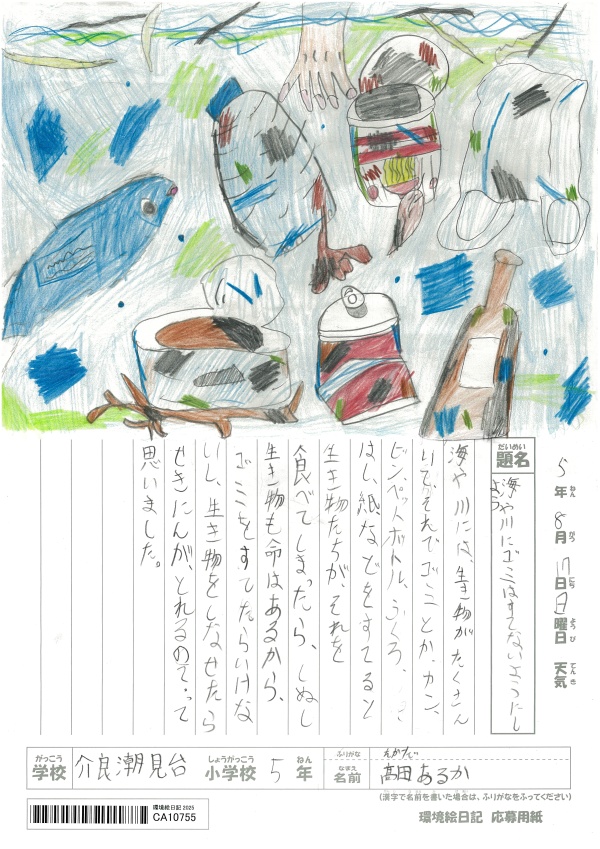 5年 8月 17日 日曜日 天気
題名 海や川にゴミはすてないようにしよう
海や川には、生き物がたくさん
いて、それでゴミとか、カン、
ビン、ペットボトル、ふくろ、
はし、紙などをすてると
生き物たちが、それを
食べてしまったら、しぬし
生き物も命はあるから、
ゴミをすてたらいけな
いし、生き物をしなせたら
せきにんが、とれるのて、って
思いました。
学校 介良潮見台 小学校 5年
ふりがな
名前 髙田あるか
(漢字で名前を書いた場合は、ふりがなをふってください)
環境絵日記 2025
CA10755
環境絵日記 応募用紙